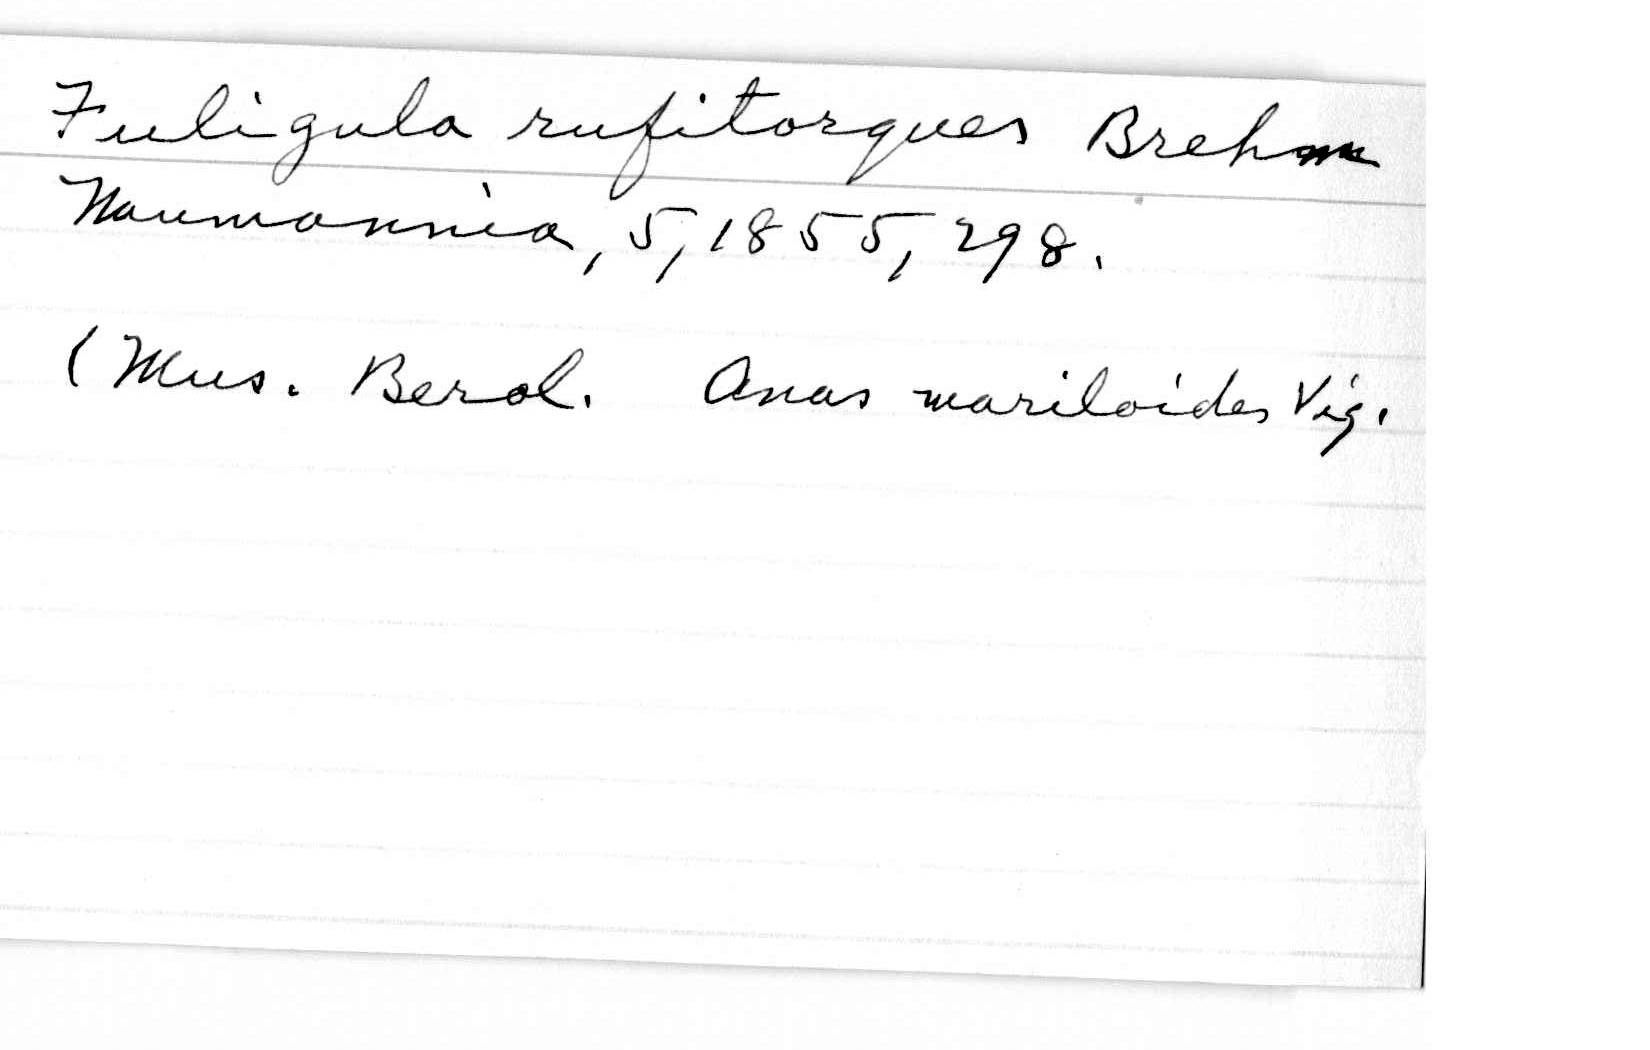 Fuligula rufitorques Brehm
Naumannia, 5, 1855, 298.
(Mus. Berol. Anas mariloides Vig.